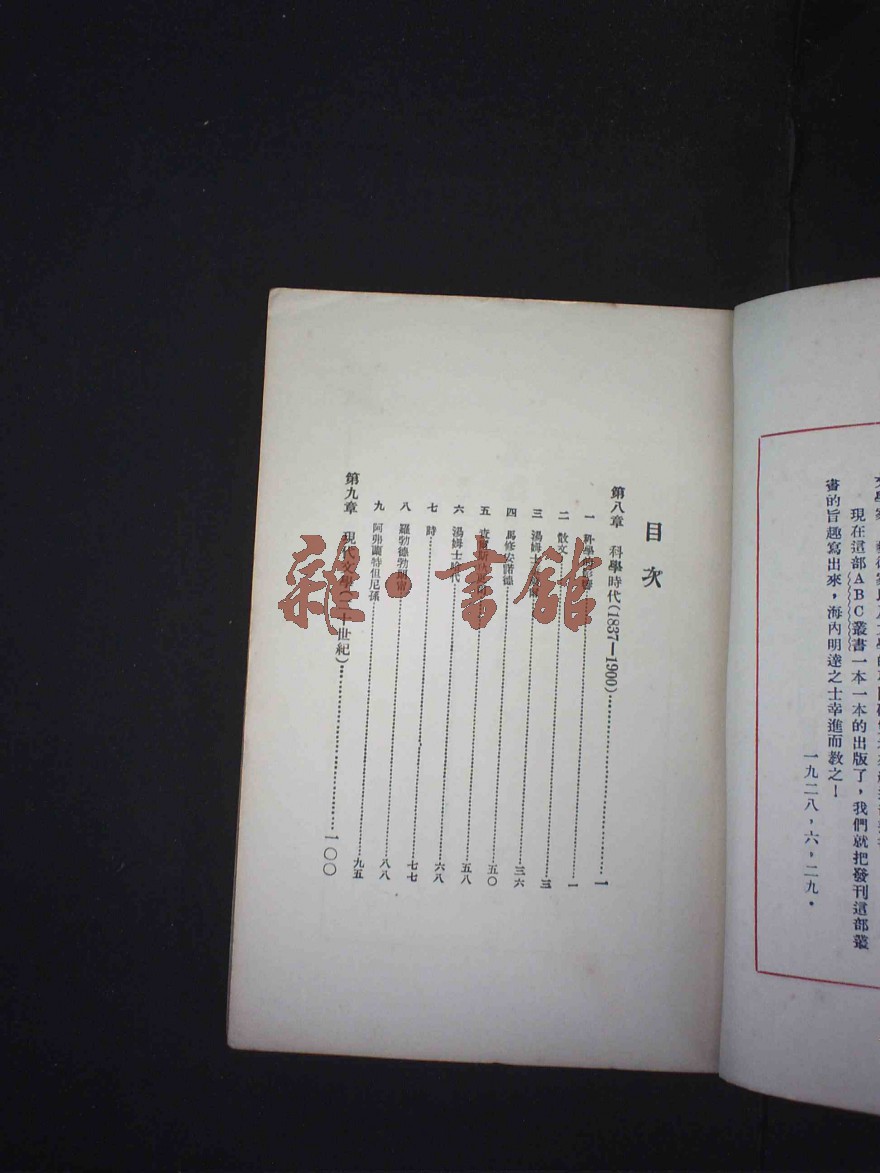 現在這部ABC叢書一本一本的出版了，我們就把發刊這部叢
書的旨趣寫出來，海內明達之士幸進而教之！
一九二八，六，二九。
目次
第八章 科學時代(1837—1900)…………一
一 科學的影響…………一
二 散文…………三
三 湯姆士…………三六
四 馬修安諾德…………五〇
五 查爾斯…………五八
六 湯姆士哈代…………六八
七 詩…………七七
八 羅勃德勃朗甯…………八八
九 阿弗蘭特但尼孫…………九五
第九章 現代文學(二十世紀)…………一〇〇
雜·書館